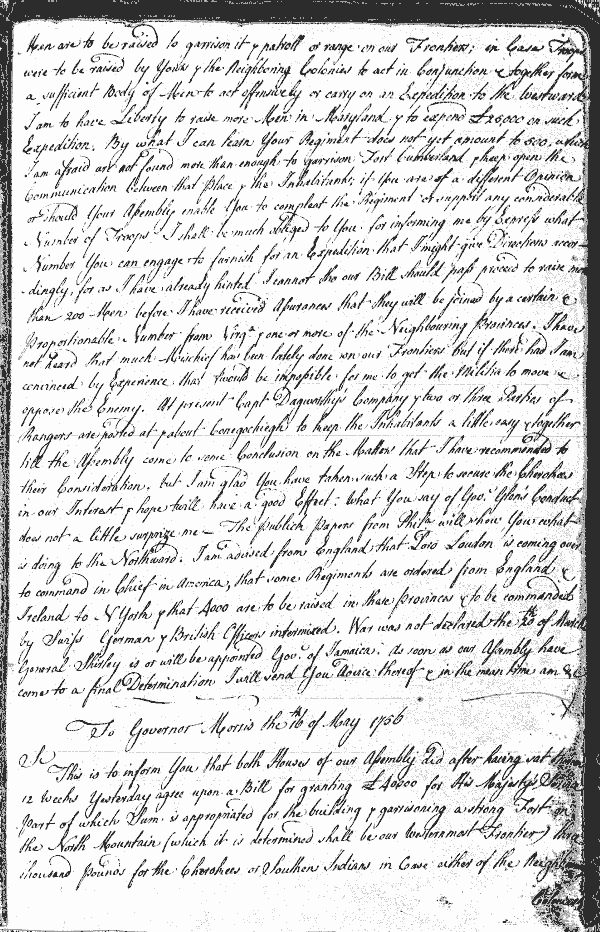 Men are to be raised to garrison it & patroll or range on our Frontiers; in Case Troops
were to be raised by Yours & the Neighboring Colonies to act in Conjunction & together form
a sufficient Body of Men to act offensively or carry on an Expedition to the Westward
I am to have Liberty to raise more Men in Maryland & to expend £25,000 on such
Expedition. By what I can learn Your Regiment does not yet amount to 500, which
I am afraid are not found more than enough to garrison Fort Cumberland & keep open the
Communication between that Place & the Inhabitants; if You are of a different Opinion
or should Your Assembly enable You to compleat the Regiment or support any considerable
Number of Troops I shall be much obliged to You for informing me by Express what
Number You can engage to furnish for an Expedition that I might give Directions accor-
dingly, for as I have already hinted I cannot tho our Bill should pass proceed to raise more
than 200 Men before I have received Assurances that they will be joined by a certain &
proportionable Number from Virga & one or more of the Neighbouring Provinces. I have
not heard that much Mischief has been lately done on our Frontiers but if there had I am
convinced by Experience that twould be impossible for me to get the Militia to move &
oppose the Enemy. At present Capt Dagworthy's Company & two or three Parties of
Rangers are posted at & about Conegochiegh to keep the Inhabitants a little easy & together
till the Assembly come to some Conclusion on the Matters that I have recommended to
their Consideration. but I am glad You have taken such a Step to secure the Cherokees
in our Interest & hope twill have a good Effect: What You say of Govr Glen's Conduct
does not a little surprize me — The publick Papers from Phila will shew You what
is doing to the Northward. I am advised from England that Lord Loudon is coming over
to command in Chief in America, that some Regiments are ordered from England &
Ireland to N York & that 4000 are to be raised in these Provinces & to be commanded
by Swiss German & British Officers intermixed. War was not declared the 20th of March
General Shirley is or will be appointed Govr of Jamaica: as soon as our Assembly have
come to a final Determination I will send You Advice thereof & in the mean time am &c
To Governor Morris the 16th of May 1756
Sr
This is to inform You that both Houses of our Assembly did after having sat
12 Weeks Yesterday agree upon a Bill for granting £40000 for His Majesty's Service
part of which Sum is appropriated for the building & garrisoning a strong Fort on
the North Mountain (which it is determined shall be our Westernmost Frontier) three
thousand pounds for the Cherokees or Southern Indians in Case either of the Neighbouring
Colonies